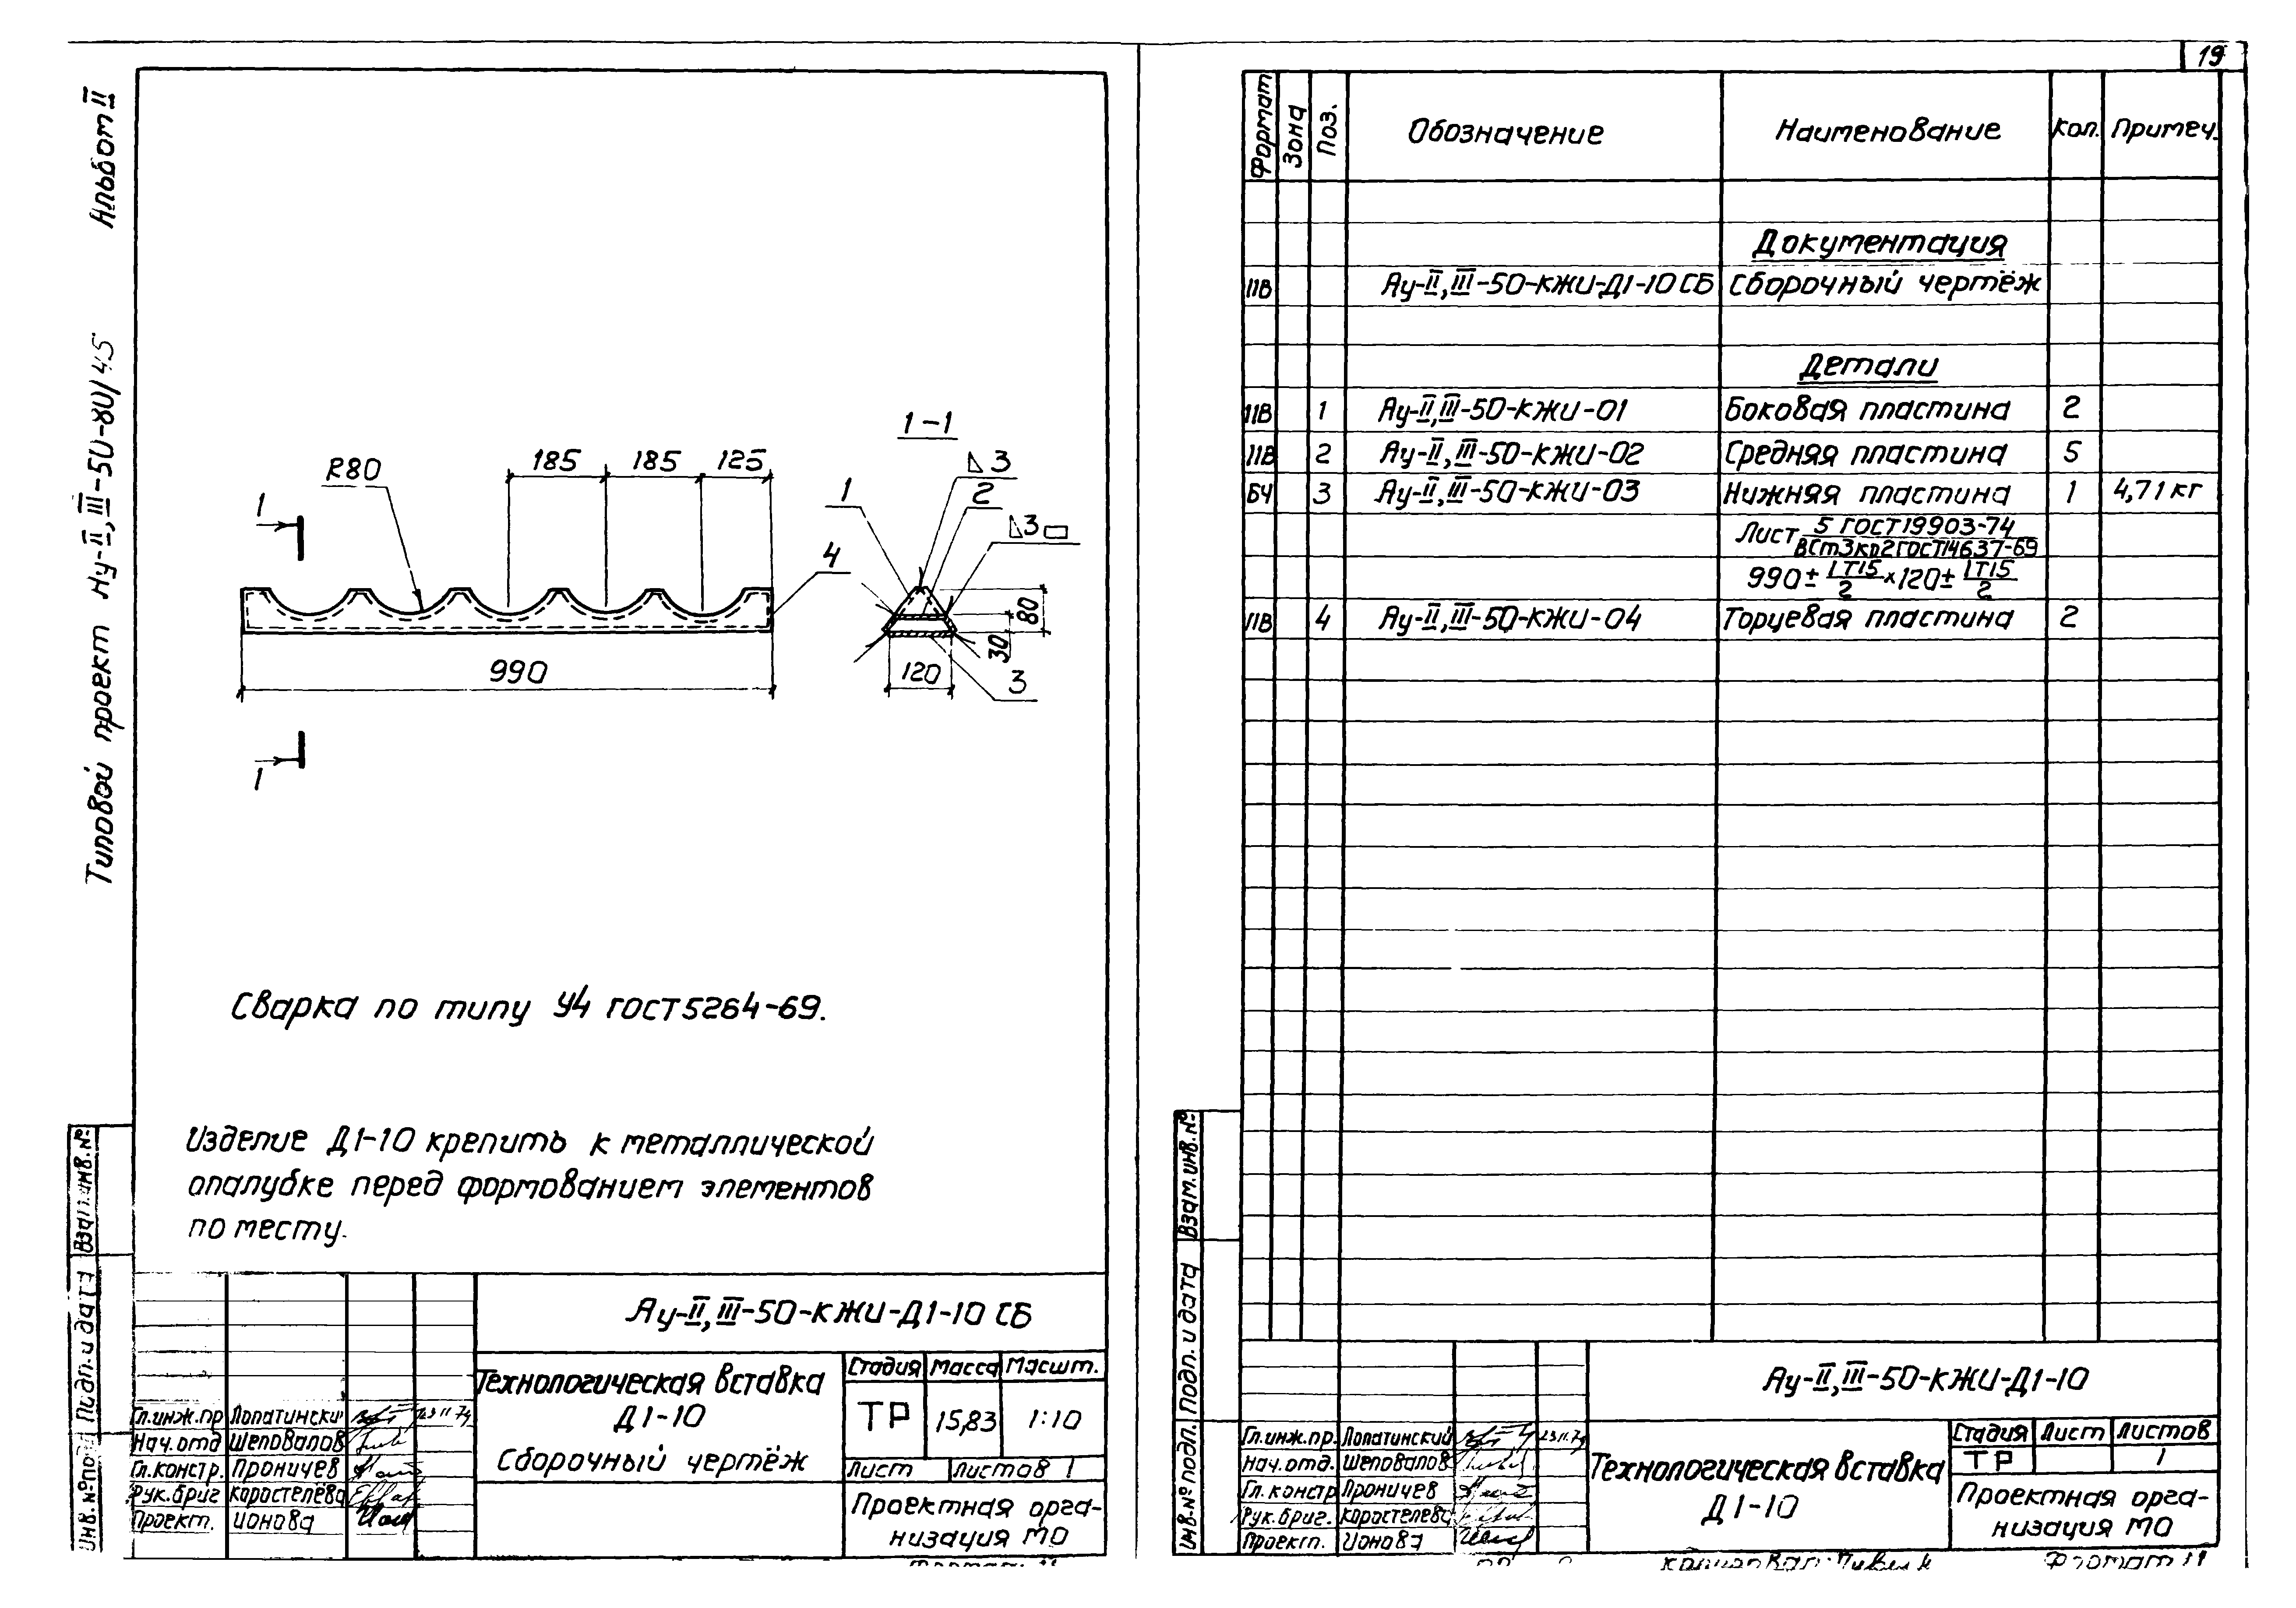 19
Альбом II
Типовой проект Ау-II,III-50-80/75
1-1
R80
185
185
125
1
1
990
1
Δ3
2
Δ3
4
80
30
120
3
Сварка по типу У4 ГОСТ5264-69.
Изделие Д1-10 крепить к металлической
опалубке перед формованием элементов
по месту.
Взам.инв.№
Подп. и дата
Инв.№подл.
Ау-II,III-50-КЖИ-Д1-10 СБ
Технологическая вставка
Д1-10
Сборочный чертёж
Стадия Масса Масшт.
ТР 15,83 1:10
Лист Листов 1
Проектная орга-
низация МО
Гл.инж.пр Лопатински
Нач.отд Шеповалов
Гл.констр. Проничев
Рук.бриг Коростелёва
Проект. Ионова
Формат Зона Поз. Обозначение Наименование Кол. Примеч.
Документация
11В Ау-II,III-50-КЖИ-Д1-10 СБ Сборочный чертёж
Детали
11В 1 Ау-II,III-50-КЖИ-01 Боковая пластина 2
11В 2 Ау-II,III-50-КЖИ-02 Средняя пластина 5
БЧ 3 Ау-II,III-50-КЖИ-03 Нижняя пластина 1 4,71 кг
Лист 5 ГОСТ19903-74
ВСт3кп2ГОСТ14637-69
990± IT15/2 ×120± IT15/2
11В 4 Ау-II,III-50-КЖИ-04 Торцевая пластина 2
Взам.инв.№
Подп. и дата
Инв.№подл.
Ау-II,III-50-КЖИ-Д1-10
Технологическая вставка
Д1-10
Стадия Лист Листов
ТР 1
Проектная орга-
низация МО
Гл.инж.пр. Лопатинский 23.11.79
Нач.отд. Шеповалов
Гл.констр Проничев
Рук.бриг. Коростелева
Проект. Ионова
Формат 11